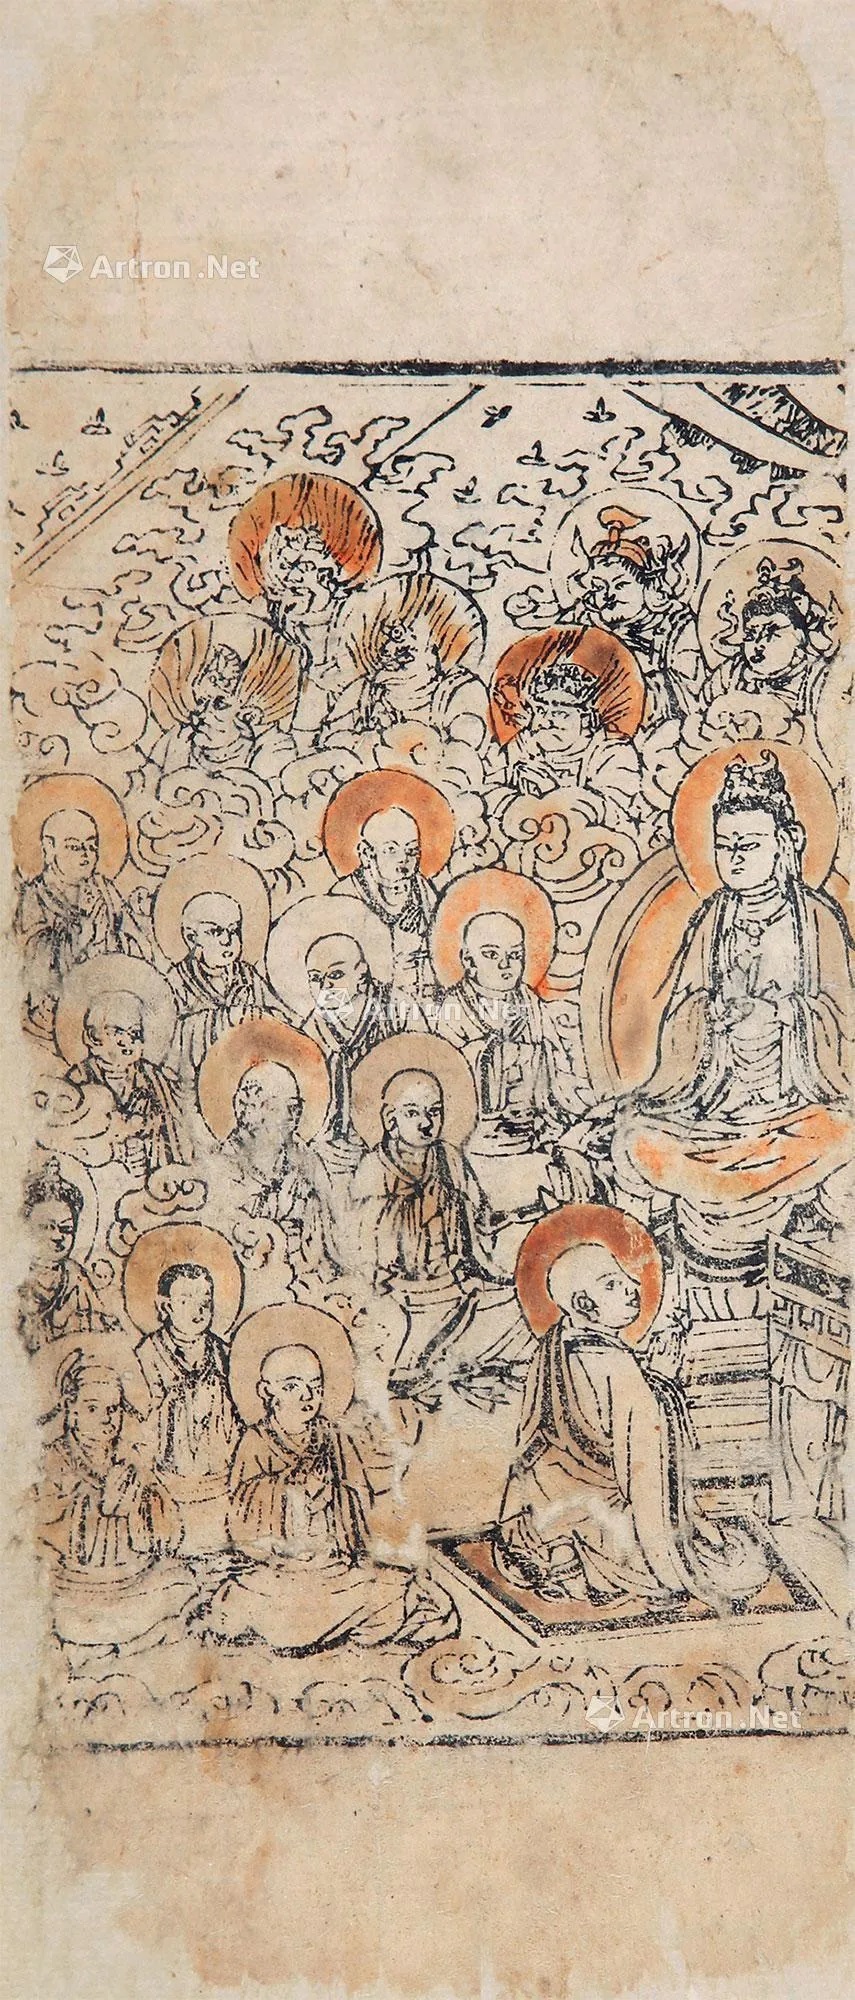 Artron.Net
Artron.Net
Artron.Net